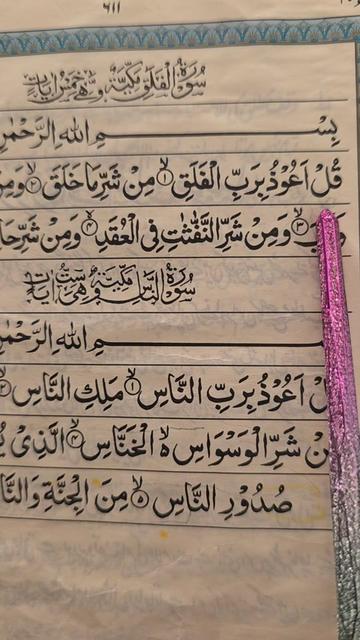 ٦١١
سُوْرَةُ الْفَلَقِ مَكِّيَّةٌ وَّهِيَ خَمْسُ اٰيَاتٍ
بِسْمِ اللهِ الرَّحْمٰنِ
قُلْ اَعُوْذُ بِرَبِّ الْفَلَقِ ۝١ مِنْ شَرِّ مَا خَلَقَ ۝٢ وَمِنْ
۝٣ وَمِنْ شَرِّ النَّفّٰثٰتِ فِی الْعُقَدِ ۝٤ وَمِنْ شَرِّ
سُوْرَةُ النَّاسِ مَكِّيَّةٌ وَّهِيَ سِتُّ اٰيَاتٍ
اللهِ الرَّحْمٰنِ
اَعُوْذُ بِرَبِّ النَّاسِ ۝١ مَلِكِ النَّاسِ ۝٢
شَرِّ الْوَسْوَاسِ ۵ الْخَنَّاسِ ۝٤ الَّذِیْ
صُدُوْرِ النَّاسِ ۝٥ مِنَ الْجِنَّةِ وَالنَّا